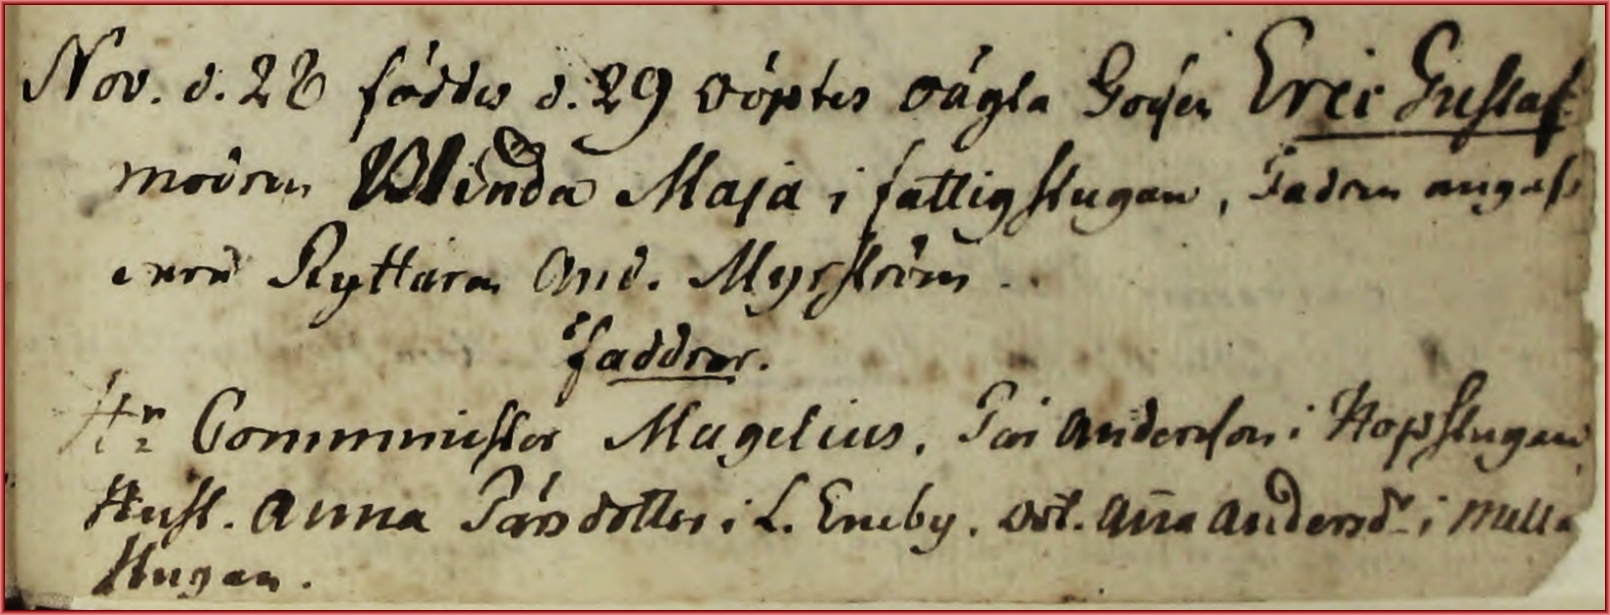 Nov. d. 28 föddes d. 29 döptes oägta Gossen Eric Gustaf
modren Blinda Maja i fattigstugan, Fadren angafs
vara Ryttaren And. Myrström.
Faddrar.
Hr Comminister Magelius, Pär Anderson i Kopstugan
Hust. Anna Pärsdotter i L. Eneby, dot. Aña Andersd. i Mella
stugan.